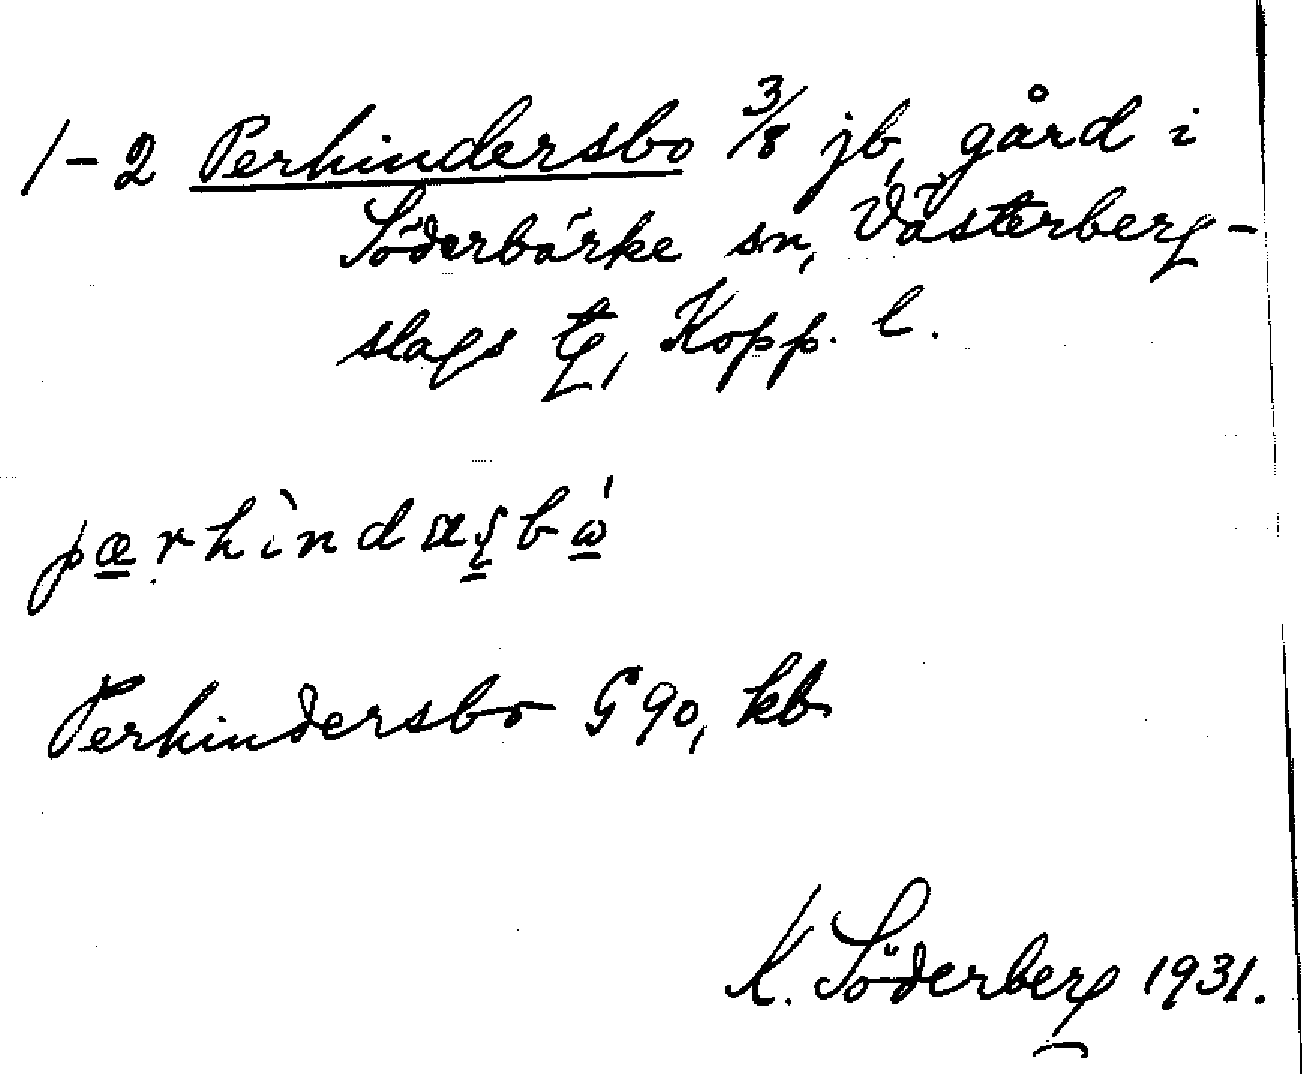 1-2 Perhindersbo 3/8 jb, gård i
Söderbärke sn, Västerberg-
slags tg, Kopp. l.
pærhìndæʂbǻ
Perhindersbo G 90, kb
K. Söderberg 1931.